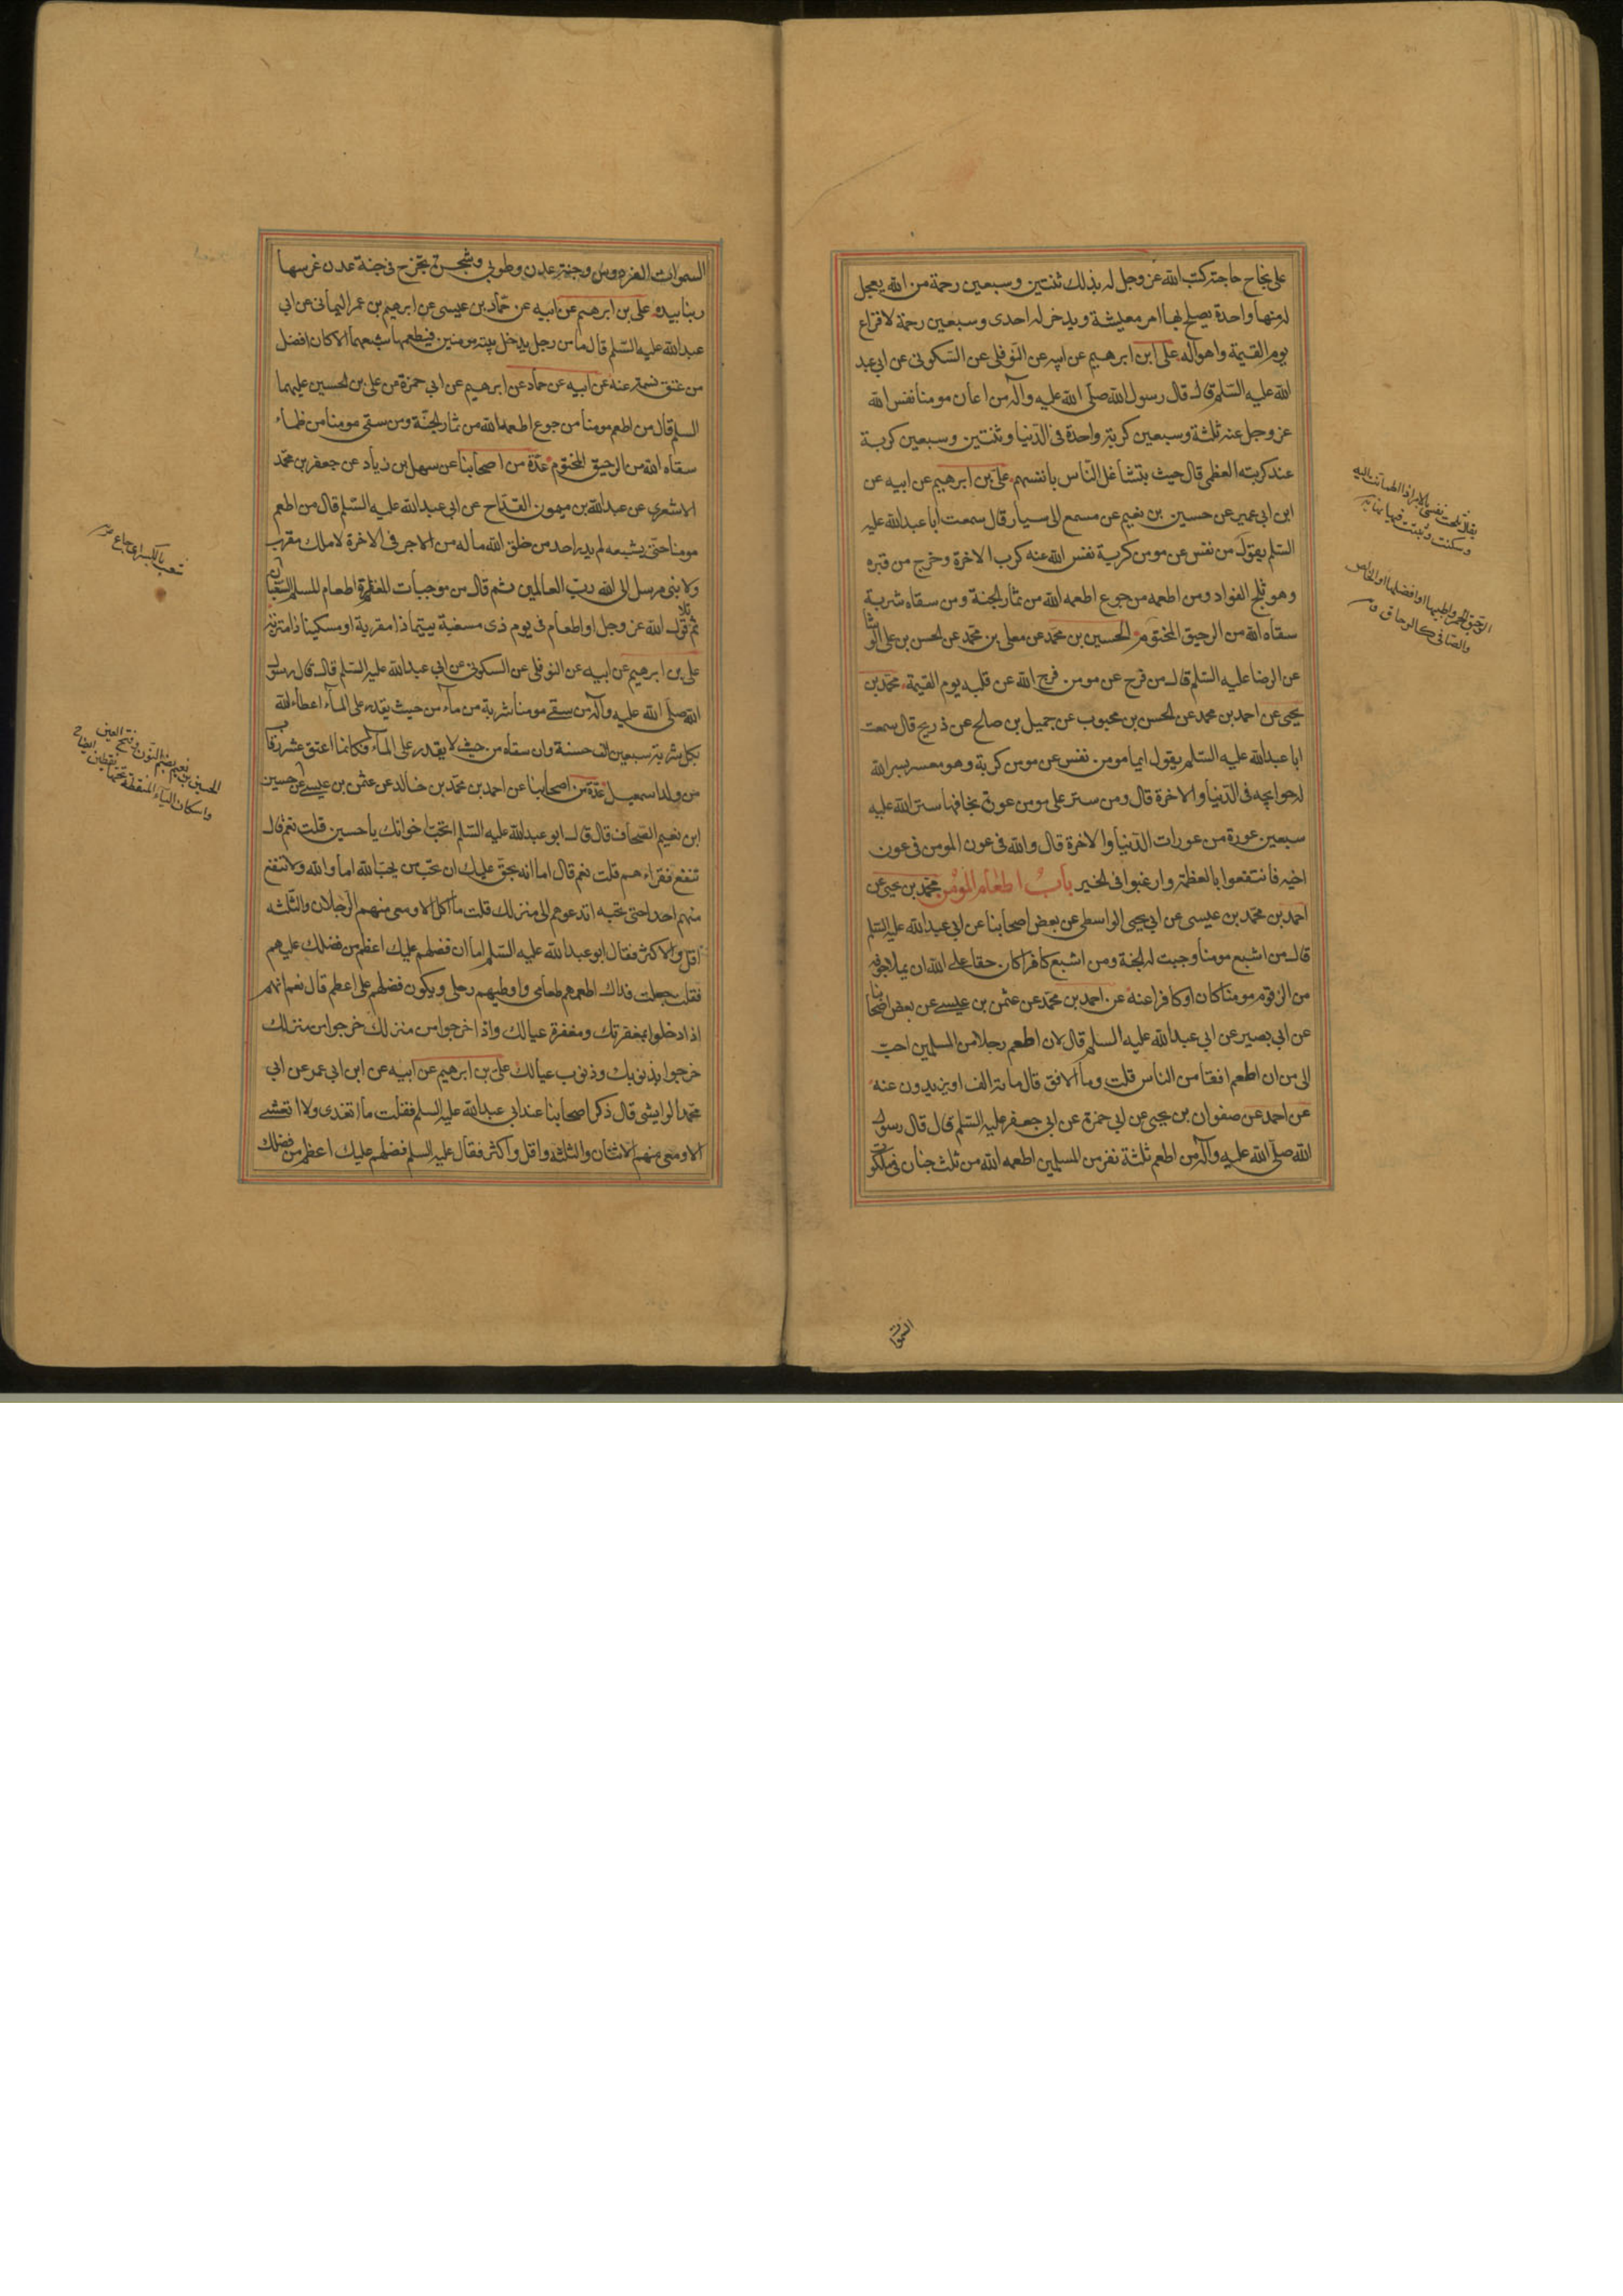 على نجاح حاجته كتب الله عز وجل له بذلك ثنتين وسبعين رحمة من الله يعجل
له منها واحدة يصلح بها امر معيشة ويدخر له احدى وسبعين رحمة لافزاع
يوم القيمة واهواله على ابن ابرهيم عن ابيه عن النوفلى عن السكونى عن ابى عبد
الله عليه السلم قال قال رسول الله صلى الله عليه وآله من اعان مومنا نفس الله
عز وجل عنه ثلثة وسبعين كربة واحدة فى الدنيا وثنتين وسبعين كربة
عند كربته العظمى قال حيث يتشاغل الناس بانفسهم على بن ابرهيم عن ابيه عن
ابن ابى عمير عن حسين بن نعيم عن مسمع ابى سيار قال سمعت ابا عبد الله عليه
السلم يقول من نفس عن مومن كربة نفس الله عنه كرب الاخرة وخرج من قبره
وهو ثلج الفواد ومن اطعمه من جوع اطعمه الله من ثمار الجنة ومن سقاه شربة
سقاه الله من الرحيق المختوم الحسين بن محمد عن معلى بن محمد عن الحسن بن على الوشا
عن الرضا عليه السلم قال من فرج عن مومن فرج الله عن قلبه يوم القيمة محمد بن
يحيى عن احمد بن محمد عن الحسن بن محبوب عن جميل بن صالح عن ذريح قال سمعت
ابا عبد الله عليه السلم يقول ايما مومن نفس عن مومن كربة وهو معسر يسر الله
له حوايجه فى الدنيا والاخرة قال ومن ستر على مومن عورة يخافها ستر الله عليه
سبعين عورة من عورات الدنيا والاخرة قال والله فى عون المومن فى عون
اخيه فانتفعوا بالعظة وارغبوا فى الخير باب اطعام المومن محمد بن يحيى عن
احمد بن محمد بن عيسى عن ابى يحيى الواسطى عن بعض اصحابنا عن ابى عبد الله عليه السلم
قال من اشبع مومنا وجبت له الجنة ومن اشبع كافرا كان حقا على الله ان يملا جوفه
من الزقوم مومنا كان او كافرا عنه عن احمد بن محمد عن عثمن بن عيسى عن بعض اصحابنا
عن ابى بصير عن ابى عبد الله عليه السلم قال لان اطعم رجلا من المسلمين احب
الى من ان اطعم افقا من الناس قلت وما الافق قال مائة الف او يزيدون عنه
عن احمد عن صفوان بن يحيى عن ابى حمزة عن ابى جعفر عليه السلم قال قال رسول
الله صلى الله عليه وآله من اطعم ثلثة نفر من المسلمين اطعمه الله من ثلث جنان فى ملكوت
السموات
يقال ثلجت نفسى بالامر اذا اطمانت اليه
وسكنت وثبت فيها
الرحيق الخمر واطيبها او افضلها او الخالص
والصافى كالرحاق
السموات الفردوس وجنة عدن وطوبى وشجرة تخرج فى جنة عدن غرسها
ربنا بيده على بن ابرهيم عن ابيه عن حماد بن عيسى عن ابرهيم بن عمر اليمانى عن ابى
عبد الله عليه السلم قال ما من رجل يدخل بيته مومنين فيطعمهما شبعهما الا كان افضل
من عتق نسمة عنه عن ابيه عن حماد عن ابرهيم عن ابى حمزة عن على بن الحسين عليهما
السلم قال من اطعم مومنا من جوع اطعمه الله من ثمار الجنة ومن سقى مومنا من ظماء
سقاه الله من الرحيق المختوم عدة من اصحابنا عن سهل بن زياد عن جعفر بن محمد
الاشعرى عن عبد الله بن ميمون القداح عن ابى عبد الله عليه السلم قال من اطعم
مومنا حتى يشبعه لم يدر احد من خلق الله ما له من الاجر فى الاخرة لا ملك مقرب
ولا نبى مرسل الى الله رب العالمين ثم قال من موجبات المغفرة اطعام المسلم السغبان
ثم تلا قول الله عز وجل او اطعام فى يوم ذى مسغبة يتيما ذا مقربة او مسكينا ذا متربة
على بن ابرهيم عن ابيه عن النوفلى عن السكونى عن ابى عبد الله عليه السلم قال قال رسول
الله صلى الله عليه وآله من سقى مومنا شربة من ماء من حيث يقدر على الماء اعطاه الله
بكل شربة سبعين الف حسنة وان سقاه من حيث لا يقدر على الماء فكانما اعتق عشر رقاب
من ولد اسمعيل عدة من اصحابنا عن احمد بن محمد بن خالد عن عثمن بن عيسى عن حسين
ابن نعيم الصحاف قال قال ابو عبد الله عليه السلم اتحب اخوانك يا حسين قلت نعم قال
تنفع فقراءهم قلت نعم قال اما انه يحق عليك ان تحب من يحب الله اما والله ولا تنفع
منهم احدا حتى تحبه اتدعوهم الى منزلك قلت ما آكل الا ومعى منهم الرجلان والثلثه
اقل والاكثر فقال ابو عبد الله عليه السلم اما ان فضلهم عليك اعظم من فضلك عليهم
فقلت جعلت فداك اطعمهم طعامى واوطيهم رحلى ويكون فضلهم على اعظم قال نعم انهم
اذا دخلوا بمغفرتك ومغفرة عيالك واذا خرجوا من منزلك خرجوا من منزلك
خرجوا بذنوبك وذنوب عيالك على بن ابرهيم عن ابيه عن ابن ابى عمر عن ابى
محمد الوابشى قال ذكر اصحابنا عند ابى عبد الله عليه السلم فقلت ما اتغدى ولا اتعشى
الا ومعى منهم الاثنان والثلثه واقل واكثر فقال عليه السلم فضلهم عليك اعظم من فضلك
الحسين بن نعيم بضم النون وفتح العين
واسكان الياء المنقطة تحتها نقطتين ايضاح